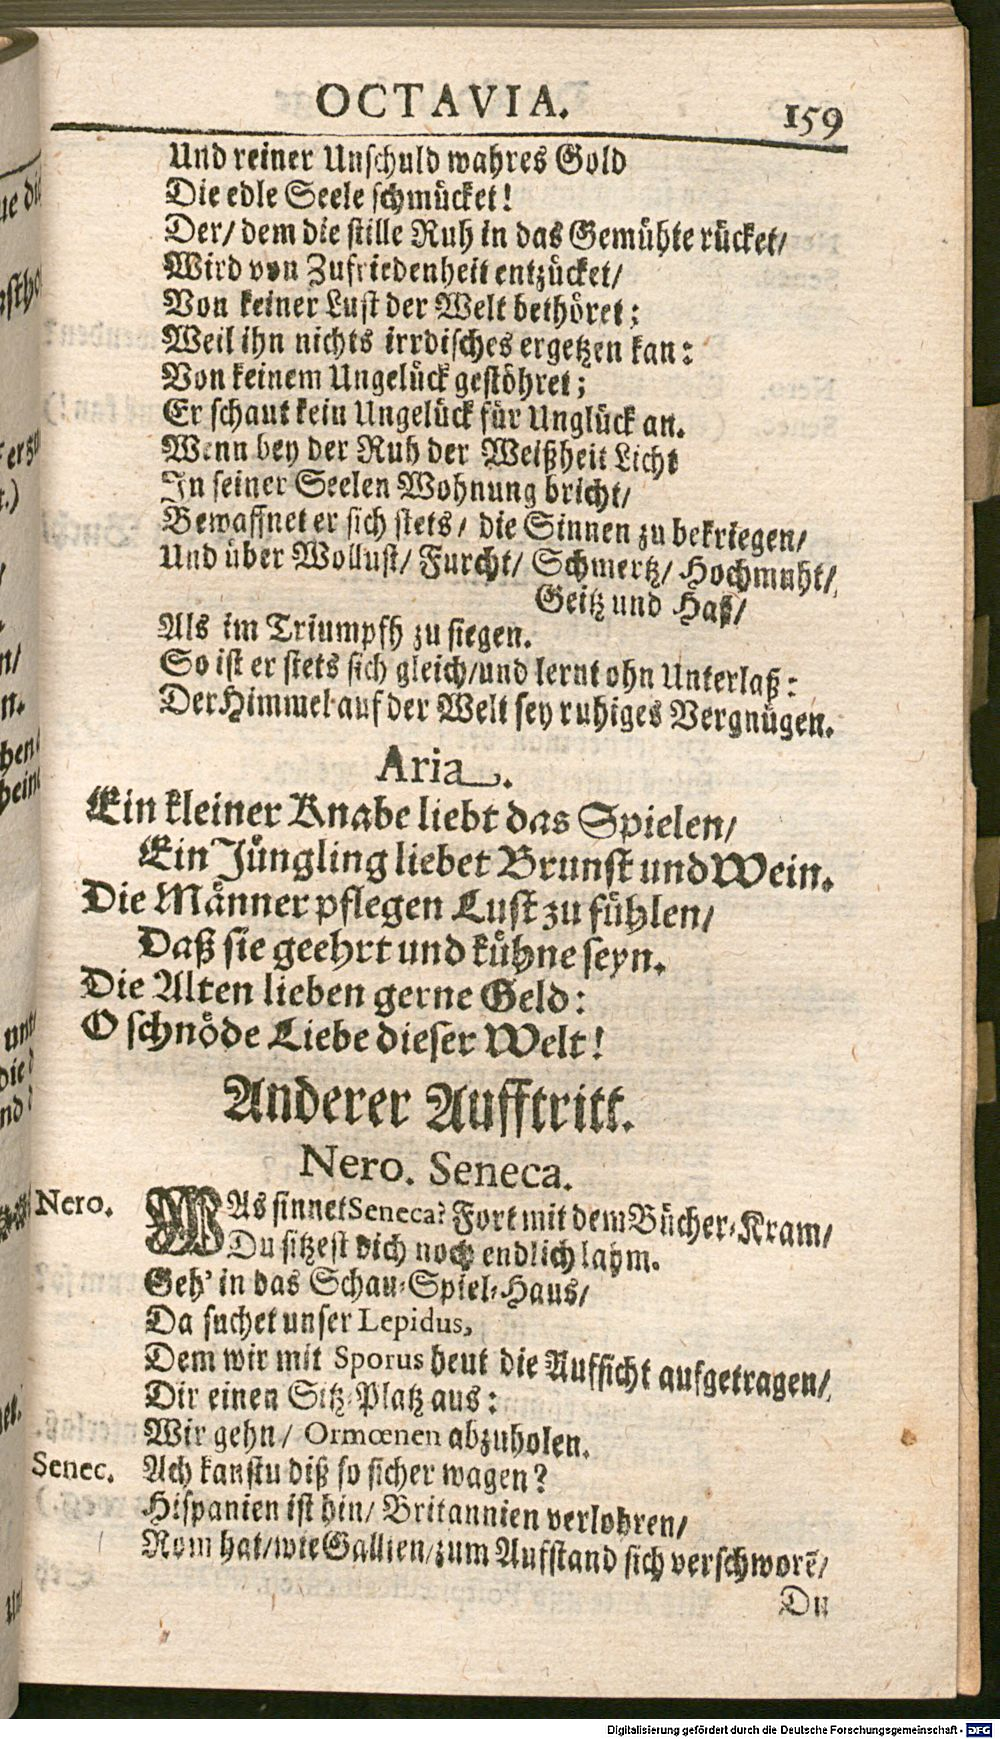 OCTAVIA. 159
Und reiner Unschuld wahres Gold
Die edle Seele schmücket!
Der/ dem die stille Ruh in das Gemühte rücket/
Wird von Zufriedenheit entzücket/
Von keiner Lust der Welt bethöret;
Weil ihn nichts irrdisches ergetzen kan:
Von keinem Ungelück gestöhret;
Er schaut kein Ungelück für Unglück an.
Wenn bey der Ruh der Weißheit Licht
In seiner Seelen Wohnung bricht/
Bewaffnet er sich stets/ die Sinnen zu bekriegen/
Und über Wollust/ Furcht/ Schmertz/ Hochmuht/
Geitz und Haß/
Als im Triumpfh zu siegen.
So ist er stets sich gleich/und lernt ohn Unterlaß:
Der Himmel auf der Welt sey ruhiges Vergnügen.
Aria.
Ein kleiner Knabe liebt das Spielen/
Ein Jüngling liebet Brunst und Wein.
Die Männer pflegen Lust zu fühlen/
Daß sie geehrt und kühne seyn.
Die Alten lieben gerne Geld:
O schnöde Liebe dieser Welt!
Anderer Aufftritt.
Nero. Seneca.
Nero. WAs sinnet Seneca? Fort mit dem Bücher-Kram/
Du sitzest dich noch endlich lahm.
Geh' in das Schau-Spiel-Haus/
Da suchet unser Lepidus,
Dem wir mit Sporus heut die Aufsicht aufgetragen/
Dir einen Sitz-Platz aus:
Wir gehn/ Ormœnen abzuholen.
Senec. Ach kanstu diß so sicher wagen?
Hispanien ist hin/ Britannien verlohren/
Rom hat/wie Gallien/zum Aufstand sich verschworẽ/
Du
Digitalisierung gefördert durch die Deutsche Forschungsgemeinschaft - DFG